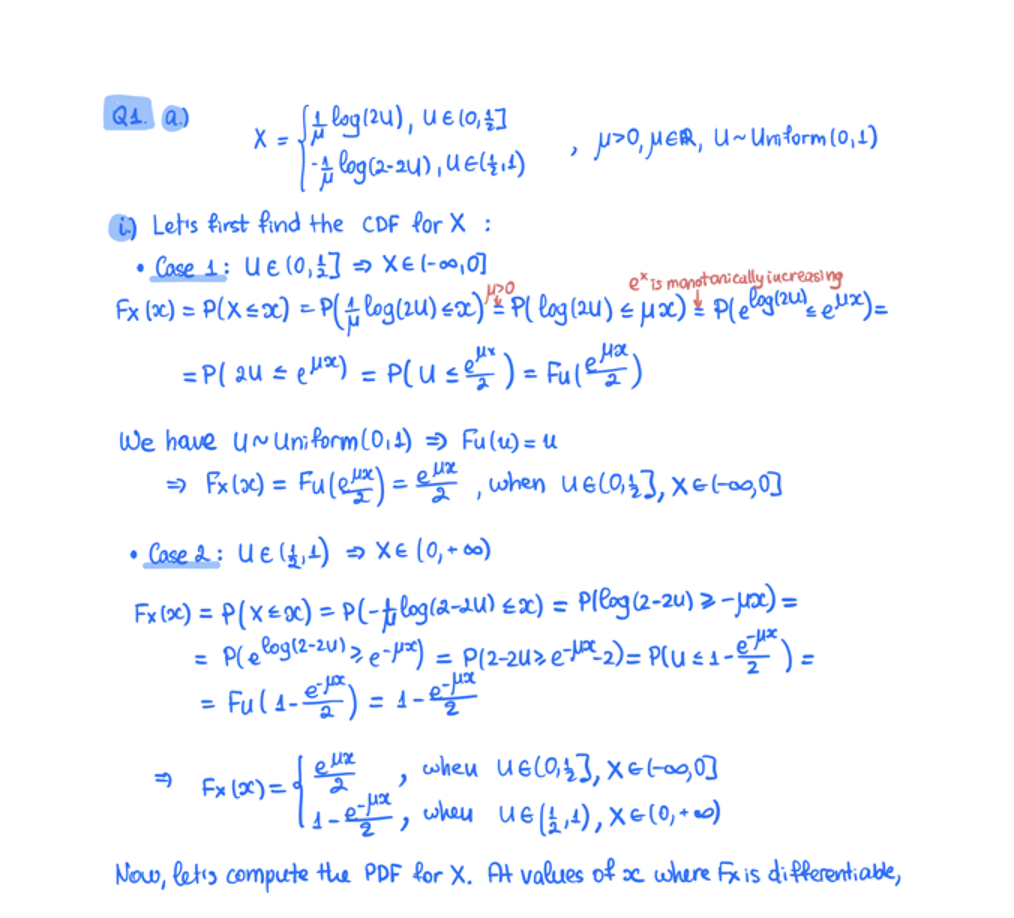 Q1. a.)
X = { 1/μ log(2U), U∈(0,1/2]
-1/μ log(2-2U), U∈(1/2,1) , μ>0, μ∈ℝ, U~Uniform(0,1)
i.) Let's first find the CDF for X :
• Case 1: U∈(0,1/2] ⇒ X∈(-∞,0]
μ>0 e^x is monotonically increasing
Fx(x) = P(X≤x) = P(1/μ log(2U)≤x) = P(log(2U) ≤ μx) = P(e^log(2U) ≤ e^μx) =
= P(2U ≤ e^μx) = P(U ≤ e^μx/2) = Fu(e^μx/2)
We have U~Uniform(0,1) ⇒ Fu(u) = u
⇒ Fx(x) = Fu(e^μx/2) = e^μx/2 , when U∈(0,1/2], X∈(-∞,0]
• Case 2: U∈(1/2,1) ⇒ X∈(0,+∞)
Fx(x) = P(X≤x) = P(-1/μ log(2-2U) ≤x) = P(log(2-2U) ≥ -μx) =
= P(e^log(2-2U) ≥ e^-μx) = P(2-2U ≥ e^-μx-2) = P(U ≤ 1 - e^-μx/2) =
= Fu(1 - e^-μx/2) = 1 - e^-μx/2
⇒ Fx(x) = { e^μx/2 , when U∈(0,1/2], X∈(-∞,0]
1 - e^-μx/2 , when U∈(1/2,1), X∈(0,+∞)
Now, let's compute the PDF for X. At values of x where Fx is differentiable,